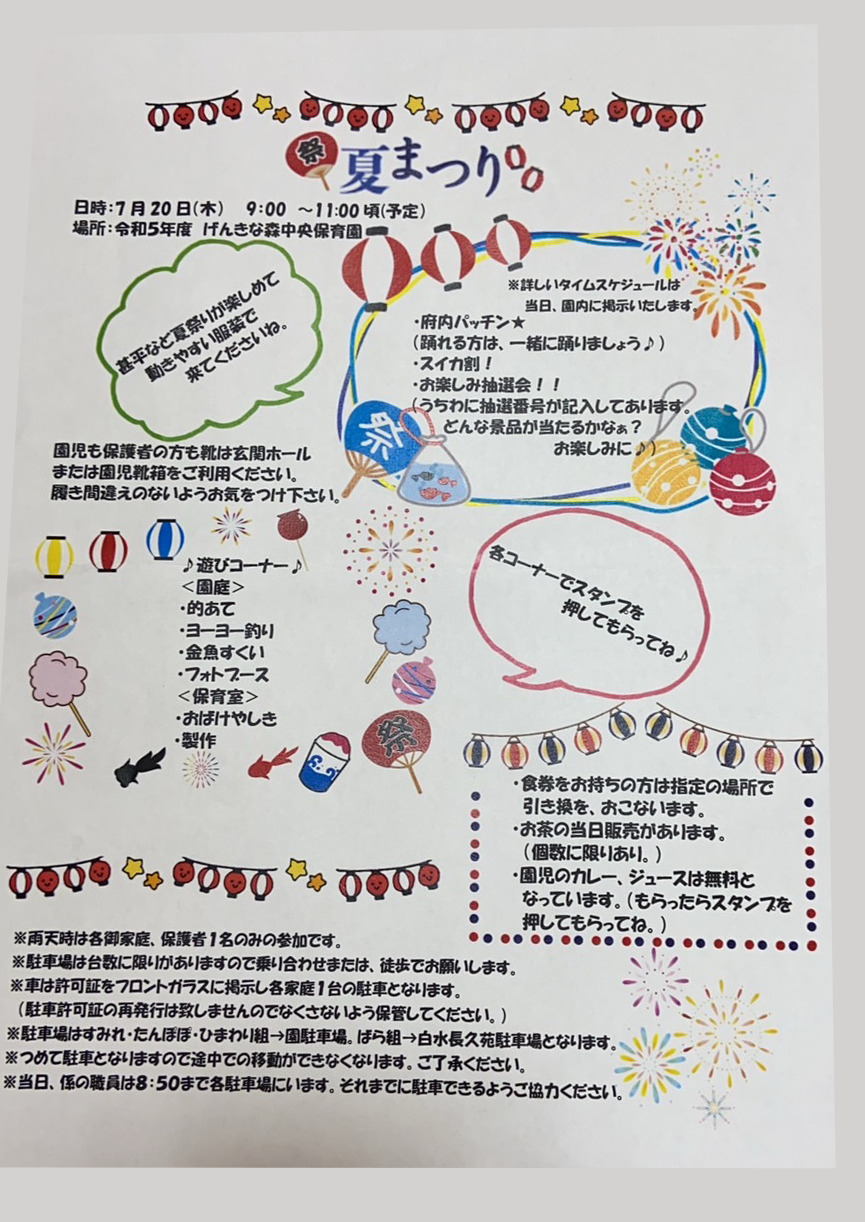 祭 夏まつり
日時：7月20日（木） 9:00 ～11:00頃（予定）
場所：令和5年度 げんきな森中央保育園
甚平など夏祭りが楽しめて
動きやすい服装で
来てくださいね。
※詳しいタイムスケジュールは
当日、園内に掲示いたします。
・府内パッチン★
（踊れる方は、一緒に踊りましょう♪）
・スイカ割！
・お楽しみ抽選会！！
（うちわに抽選番号が記入してあります。
どんな景品が当たるかなぁ？
お楽しみに♪）
祭
園児も保護者の方も靴は玄関ホール
または園児靴箱をご利用ください。
履き間違えのないようお気をつけ下さい。
♪遊びコーナー♪
＜園庭＞
・的あて
・ヨーヨー釣り
・金魚すくい
・フォトブース
＜保育室＞
・おばけやしき
・製作
祭
各コーナーでスタンプを
押してもらってね♪
・食券をお持ちの方は指定の場所で
引き換を、おこないます。
・お茶の当日販売があります。
（個数に限りあり。）
・園児のカレー、ジュースは無料と
なっています。（もらったらスタンプを
押してもらってね。）
※雨天時は各御家庭、保護者1名のみの参加です。
※駐車場は台数に限りがありますので乗り合わせまたは、徒歩でお願いします。
※車は許可証をフロントガラスに掲示し各家庭1台の駐車となります。
（駐車許可証の再発行は致しませんのでなくさないよう保管してください。）
※駐車場はすみれ・たんぽぽ・ひまわり組→園駐車場。ばら組→白水長久苑駐車場となります。
※つめて駐車となりますので途中での移動ができなくなります。ご了承ください。
※当日、係の職員は8：50まで各駐車場にいます。それまでに駐車できるようご協力ください。